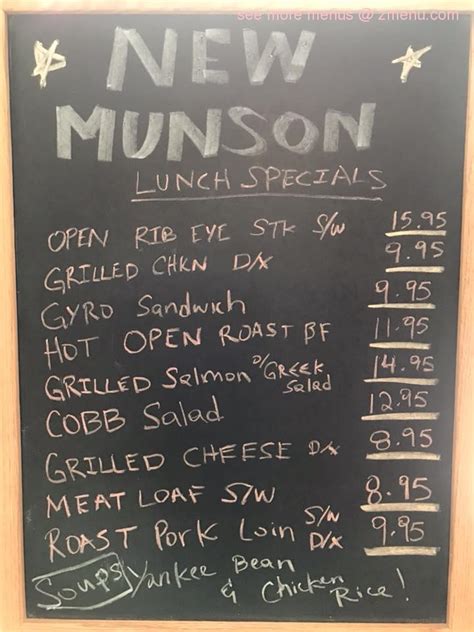 see more menus @ zmenu.com
NEW
MUNSON
LUNCH SPECIALS
OPEN RIB EYE STK S/W 15.95
GRILLED CHKN D/X 9.95
GYRO Sandwich 9.95
HOT OPEN ROAST BF 11.95
GRILLED Salmon O/GREEK Salad 14.95
COBB Salad 12.95
GRILLED CHEESE D/X 8.95
MEAT LOAF S/W 8.95
ROAST Pork Loin S/W D/X 9.95
Soups Yankee Bean
& Chicken Rice!